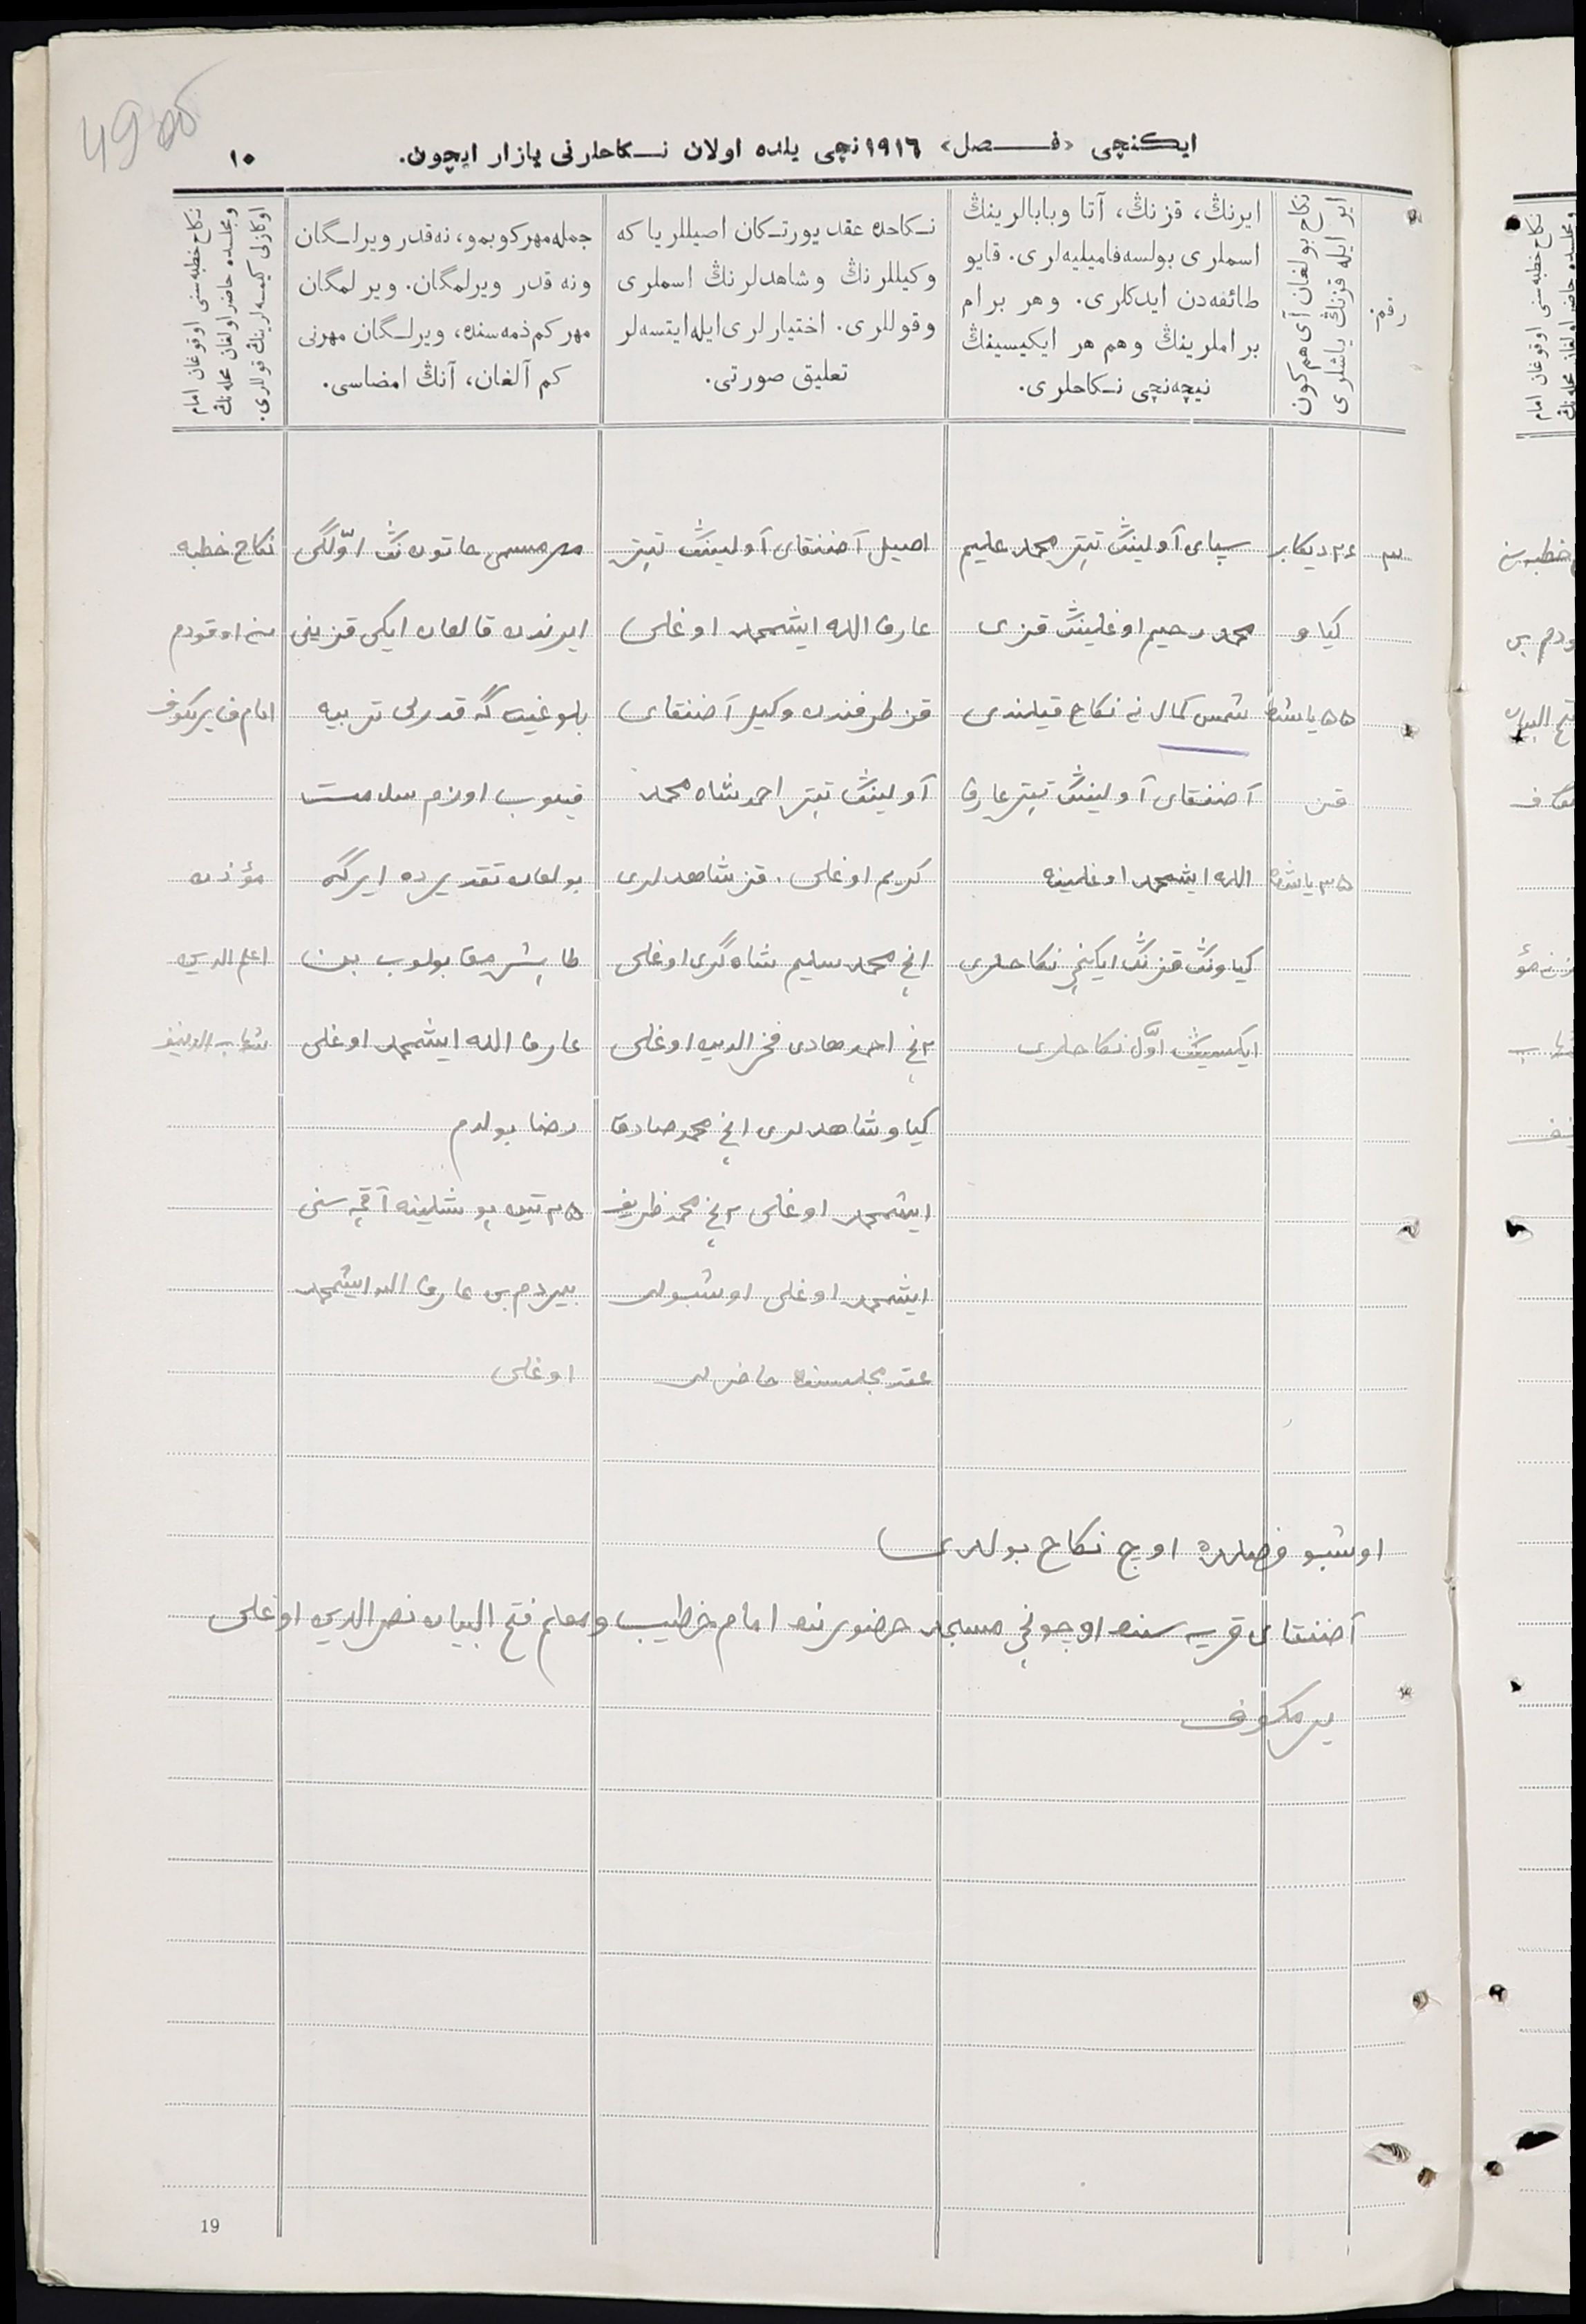 49 об
ایکنچی «فصل» ١٩١٦نچی یلده اولان نکاحلرنی یازار ایچون.
١٠
رقم.
نکاح بولغان آی هم کون
ایر ایله قزنڭ یاشلری
ایرنڭ، قزنڭ، آتا وبابالرینڭ
اسملری بولسه فامیلیه‌لری. قایو
طائفه‌دن ایدکلری. وهر برام
براملرینڭ وهم هر ایکیسینڭ
نیچه‌نچی نکاحلری.
نکاحده عقد یورتکان اصیللر یا که
وکیللرنڭ وشاهدلرنڭ اسملری
وقوللری. اختیارلری ایله ایتسه‌لر
تعلیق صورتی.
جمله مهر کوبمو، نه‌قدر ویرلگان
ونه قدر ویرلمگان. ویرلمگان
مهر کم ذمه‌سنده، ویرلگان مهرنی
کم آلغان، آنڭ امضاسی.
نکاح خطبه سنی اوقوغان امام
ومجلسده حاضر اولغان محله‌نڭ
اوکازلی کیمسه‌لرینڭ قوللری.
٣
٢٤ دیکابر
کیاو
٥٥ یاشده
قز
٣٥ یاشده
سپای آولینڭ تیتر محمد علیم
محمد رحیم اوغلینڭ قزی
شمس کمال نه نکاح قیلندی
آضنقای آولینڭ تیتر عارف
الله ایشمحمد اوغلینه
کیاونڭ قزنڭ ایکنچی نکاحلری
ایکسینڭ اوّل نکاحلری
اصیل آضنقای آولینڭ تیتر
عارف الله ایشمحمد اوغلی
قز طرفندن وکیل آضنقای
آولینڭ تیتر احمدشاه محمد
کریم اوغلی. قز شاهدلری
انچی محمد سلیم شاه گری اوغلی
٢نچی احمد هادی فخرالدین اوغلی
کیاو شاهدلری انچی محمد صادق
ایشمحمد اوغلی ٢نچی محمد ظریف
ایشمحمد اوغلی اوشبولر
عقد مجلسنده حاضرلر
مهر مسمی خاتون نڭ اوّلگی
ایرندن قالغان ایکی قزینی
بلوغیت گه قدرلی تربیه
قیلوب اوزم سلامت
بولغان تقدیرده ایرگه
طابشرمق بولوب بن
عارف الله ایشمحمد اوغلی
رضا بولدم
٣٥ تین پوشلینه آقچه سنی
بیردم بن عارف الله ایشمحمد
اوغلی
نکاح خطبه
سن اوقودم
امام ف یرمکوف
مؤذن
اعلم الدین
اوشبو فصلده اوچ نکاح بولدی
آضنقای قریه سنده اوچونچی مسجد حضورنده امام خطیب ومعلم فتح البیان نصرالدین اوغلی
یرمکوف
19